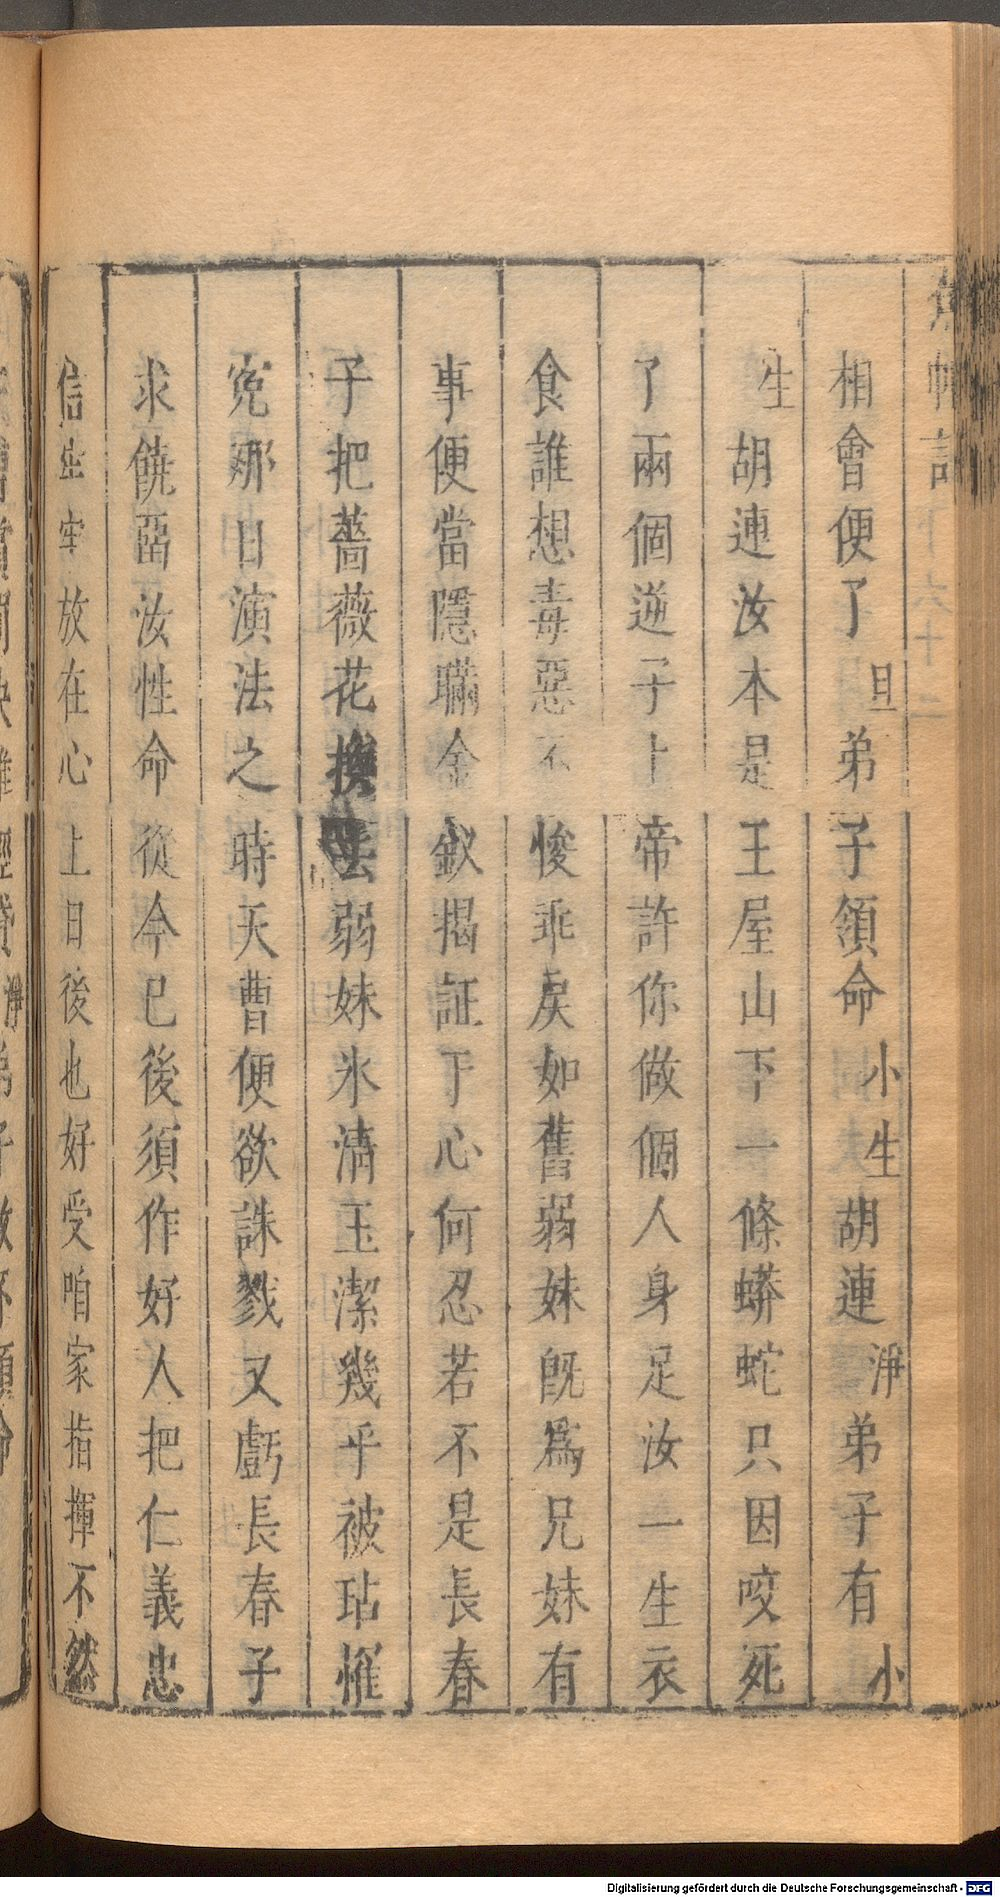 相會便了旦弟子領命小生胡連淨弟子有小
生胡連汝本是王屋山下一條蟒蛇只因咬死
了兩個逆子上帝許你做個人身足汝一生衣
食誰想毒惡不悛乖戾如舊弱妹既爲兄妹有
事便當隱瞞金釵揭証于心何忍若不是長春
子把薔薇花換去弱妹氷清玉潔幾乎被玷惟
寃那日演法之時天曹便欲誅戮又虧長春子
求饒畱汝性命從今已後須作好人把仁義忠
信牢牢放在心上日後也好受咱家指揮不然
Digitalisierung gefördert durch die Deutsche Forschungsgemeinschaft - DFG